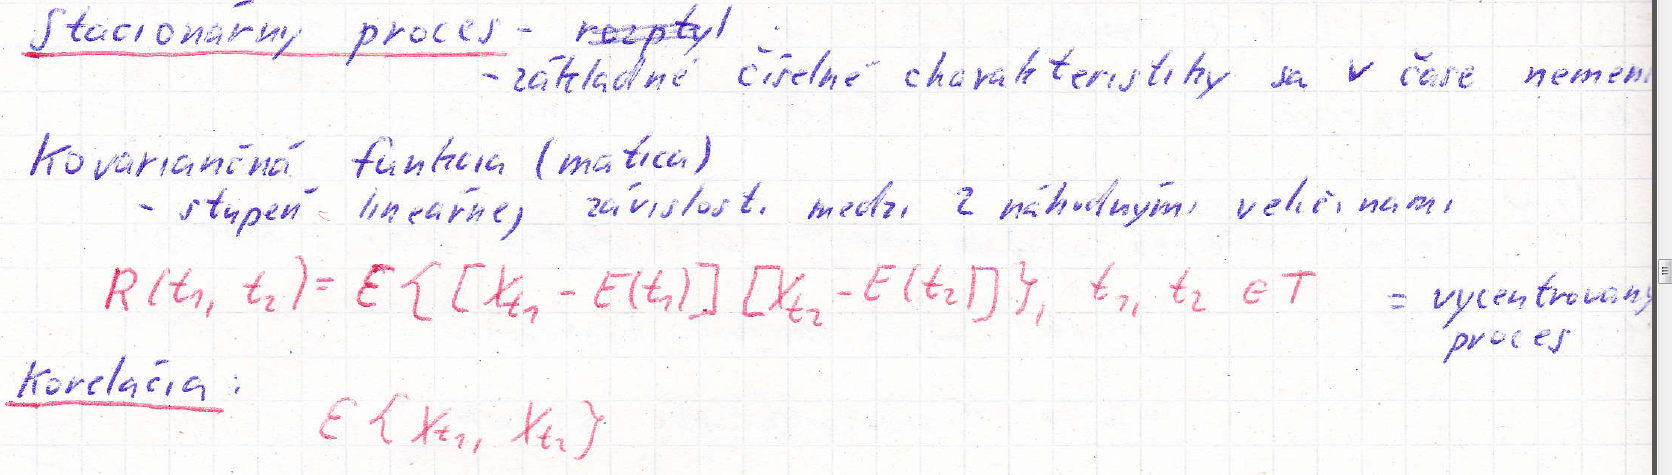 Stacionárny proces - rozptyl :
- základné číselné charakteristiky sa v čase nemeni
Kovariančná funkcia (matica)
- stupeň lineárnej závislosti medzi 2 náhodnými veličinami
R(t₁, t₂) = E{[X_t₁ - E(t₁)] [X_t₂ - E(t₂)]}, t₁, t₂ ∈ T = vycentrovaný
proces
Korelácia :
E {X_t₁, X_t₂}